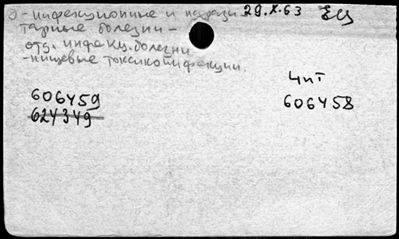 Э - инфекционные и парази 29.X.63 ЕЦ
тарные болезни -
отд. инфекц. болезни
- пищевые токсикоинфекции.
Чит
606459 606458
624349